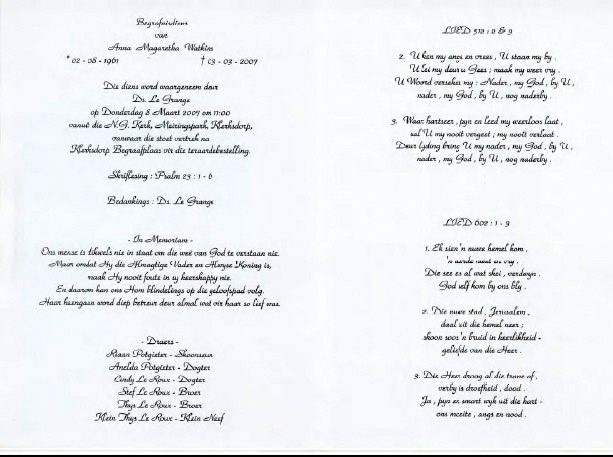 Begrafnisdiens
van
Anna Magaretha Watkins
* 02 - 08 - 1961 † 03 - 03 - 2007
Die diens word waargeneem deur
Ds. Le Grange
op Donderdag 8 Maart 2007 om 11:00
vanuit die N.G. Kerk, Meiringspark, Klerksdorp,
vanwaar die stoet vertrek na
Klerksdorp Begraafplaas vir die teraardebestelling.
Skriflesing : Psalm 23 : 1 - 6
Bedankings : Ds. Le Grange
- In Memoriam -
Ons mense is dikwels nie in staat om die weë van God te verstaan nie.
Maar omdat Hy die Almagtige Vader en Alwyse Koning is,
maak Hy nooit foute in sy heerskappy nie.
En daarom kan ons Hom blindelings op die geloofspad volg.
Haar heengaan word diep betreur deur almal wat vir haar so lief was.
- Draers -
Riaan Potgieter - Skoonseun
Anelda Potgieter - Dogter
Cindy Le Roux - Dogter
Stef Le Roux - Broer
Thys Le Roux - Broer
Klein Thys Le Roux - Klein Neef
LIED 512 : 2 & 3
2. U ken my angs en vrees , U staan my by .
U lei my deur u Gees ; maak my weer vry .
U Woord verseker my : Nader , my God , by U ,
nader , my God , by U , nog naderby .
3. Waar hartseer , pyn en leed my weerloos laat ,
sal U my nooit vergeet ; my nooit verlaat .
Deur lyding bring U my nader , my God , by U ,
nader , my God , by U , nog naderby .
LIED 602 : 1 - 3
1. Ek sien 'n nuwe hemel kom ,
'n aarde want vry .
Die see es al wat skei , verdwyn .
God self kom by ons bly .
2. Die nuwe stad , Jerusalem ,
daal uit die hemel neer ;
skoon soos 'n bruid in heerlikheid -
geliefde van die Heer .
3. Die Heer droog al die trane af ,
verby is droefheid , dood .
Ja , pyn en smart wyk uit die hart -
ons moeite , angs en nood .